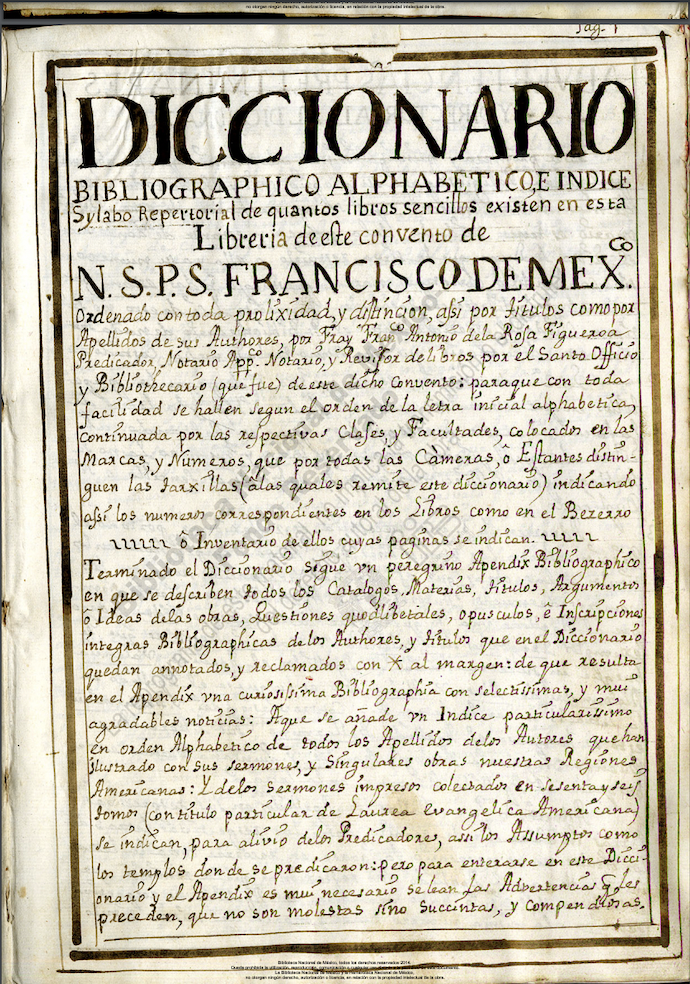 no otorgan ningún derecho, autorización o licencia, en relación con la propiedad intelectual de la obra.
Pag. 1
DICCIONARIO
BIBLIOGRAPHICO ALPHABETICO, E INDICE
Sylabo Repertorial de quantos libros sencillos existen en esta
Libreria de este convento de
N. S. P. S. FRANCISCO DE MEX.CO
Ordenado con toda prolixidad, y distincion, assi por titulos como por
Apellidos de sus Authores, por Fray Franco Antonio de la Rosa Figueroa
Predicador, Notario Appo. Notario, y Revissor de libros por el Santo Officio
y Bibliothecario (que fue) de este dicho Convento: para que con toda
facilidad se hallen segun el orden de la letra inicial alphabetica,
continuada por las respectivas Clases, y Facultades, colocados en las
Marcas, y Numeros, que por todas las Càmeras, ô Estantes distin-
guen las tarxillas (âlas quales remite este diccionario) indicando
assi los numeros correspondientes en los Libros como en el Bezerro
ô Inventario de ellos cuyas paginas se indican.
Terminado el Diccionario sigue vn peregrino Apendix Bibliographico
en que se describen todos los Catalogos, Materias, titulos, Argumentos
ô Ideas delas obras, Questiones quodlibetales, opusculos, ê Inscripciones
integras Bibliographicas de los Authores, y titulos que en el Diccionario
quedan annotados, y reclamados con X al margen: de que resulta
en el Apendix vna curiosissima Bibliographia con selectissimas, y mui
agradables noticias: Aque se añade vn Indice particularissimo
en orden Alphabetico de todos los Apellidos delos Autores que han
ilustrado con sus sermones, y Singulares obras nuestras Regiones
Americanas: Y delos Sermones impresos colectados en sesenta y seis
tomos (con titulo particular de Laurea evangelica Americana)
se indican, para alivio delos Predicadores, assi los Assumptos como
los templos donde se predicaron: pero para enterarse en este Dicci-
onario y el Apendix es mui necesario se lean las Advertencias q̃ les
preceden, que no son molestas sino succintas, y compendiosas.
Biblioteca Nacional de México, todos los derechos reservados 2014.
La Biblioteca Nacional de México y la Hemeroteca Nacional de México,
no otorgan ningún derecho, autorización o licencia, en relación con la propiedad intelectual de la obra.